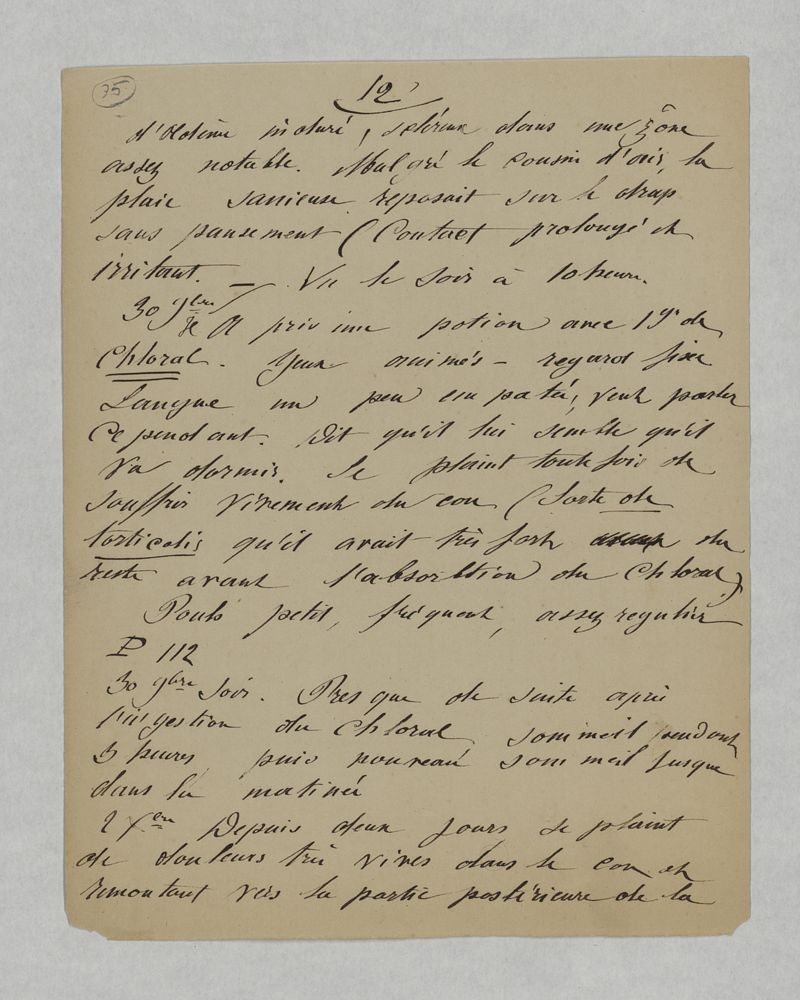 35
12
d'Oedème induré, scléreux dans une zône
assez notable. Malgré le coussin d'air, la
plaie sanieuse reposait sur le drap
sans pansement (Contact prolongé et
irritant. — Vu le soir à 10 heures.
30 9bre A pris une potion avec 1gr de
Chloral. Yeux animés – regard fixe
Langue un peu empatée, veut parler
Cependant. Dit qu'il lui semble qu'il
va dormir. Se plaint toutefois de
souffrir vivement du cou (Sorte de
torticolis qu'il avait très fort du
reste avant l'absorbtion du Chloral)
Pouls petit, fréquent, assez regulier
P 112
30 9bre Soir. Presque de suite après
l'ingestion du Chloral sommeil pendant
3 heures puis nouveau sommeil jusque
dans la matinée
2 Xbre Depuis deux jours se plaint
de douleurs très vives dans le cou et
remontant vers la partie postérieure de la